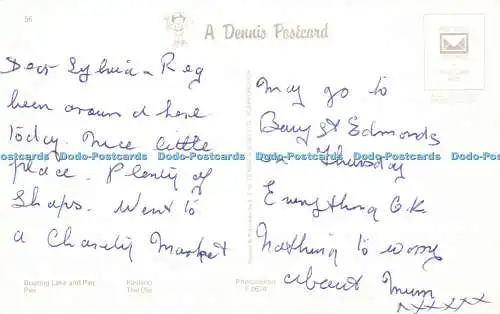 56
A Dennis Postcard
Dear Sylvia & Reg
been around here
today. Nice little
place. Plenty of
Shops. Went to
a Charity Market
May go to
Bury St Edmonds
on Thursday
Everything O.K.
Nothing to worry
about Mum
xxxxx
Dodo-Postcards Dodo-Postcards Dodo-Postcards Dodo-Postcards Dodo-Postcards Dodo-Postcards Dodo-Postcards
Boating Lake and Pier,
Pier
The
Photocolour